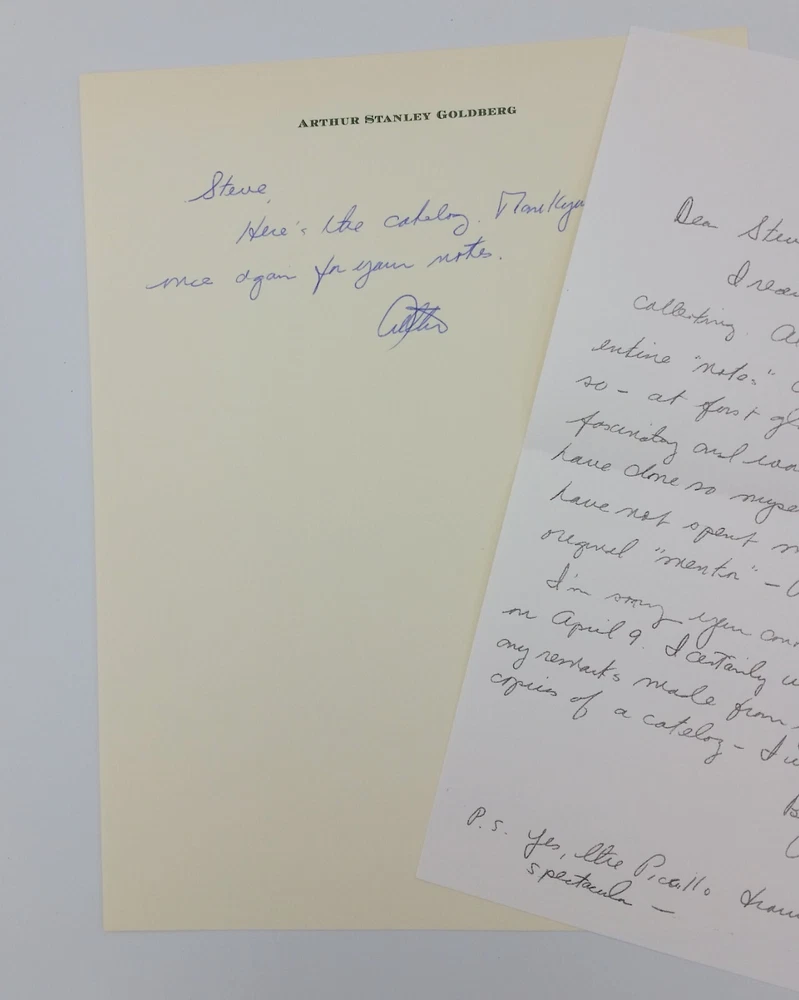 ARTHUR STANLEY GOLDBERG
Steve,
Here's the catalog. Thank you
once again for your notes.
Arthur
Dear Stev
I
collecting.
entire "notes"
so - at first gl
fascinating and
have done so myse
have not spent
original "mentor" -
I'm sorry you
on April 9. I certainly
my remarks made from
copies of a catalog - I
P.S. Yes, the Picasso
spectacular -